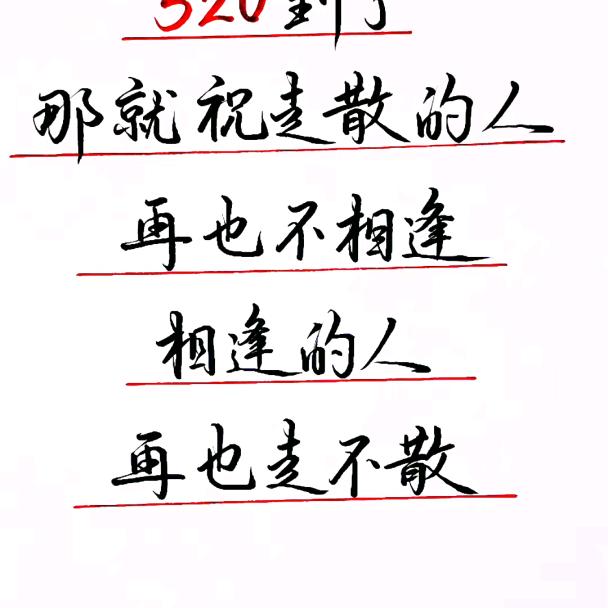 520到了
那就祝走散的人
再也不相逢
相逢的人
再也走不散